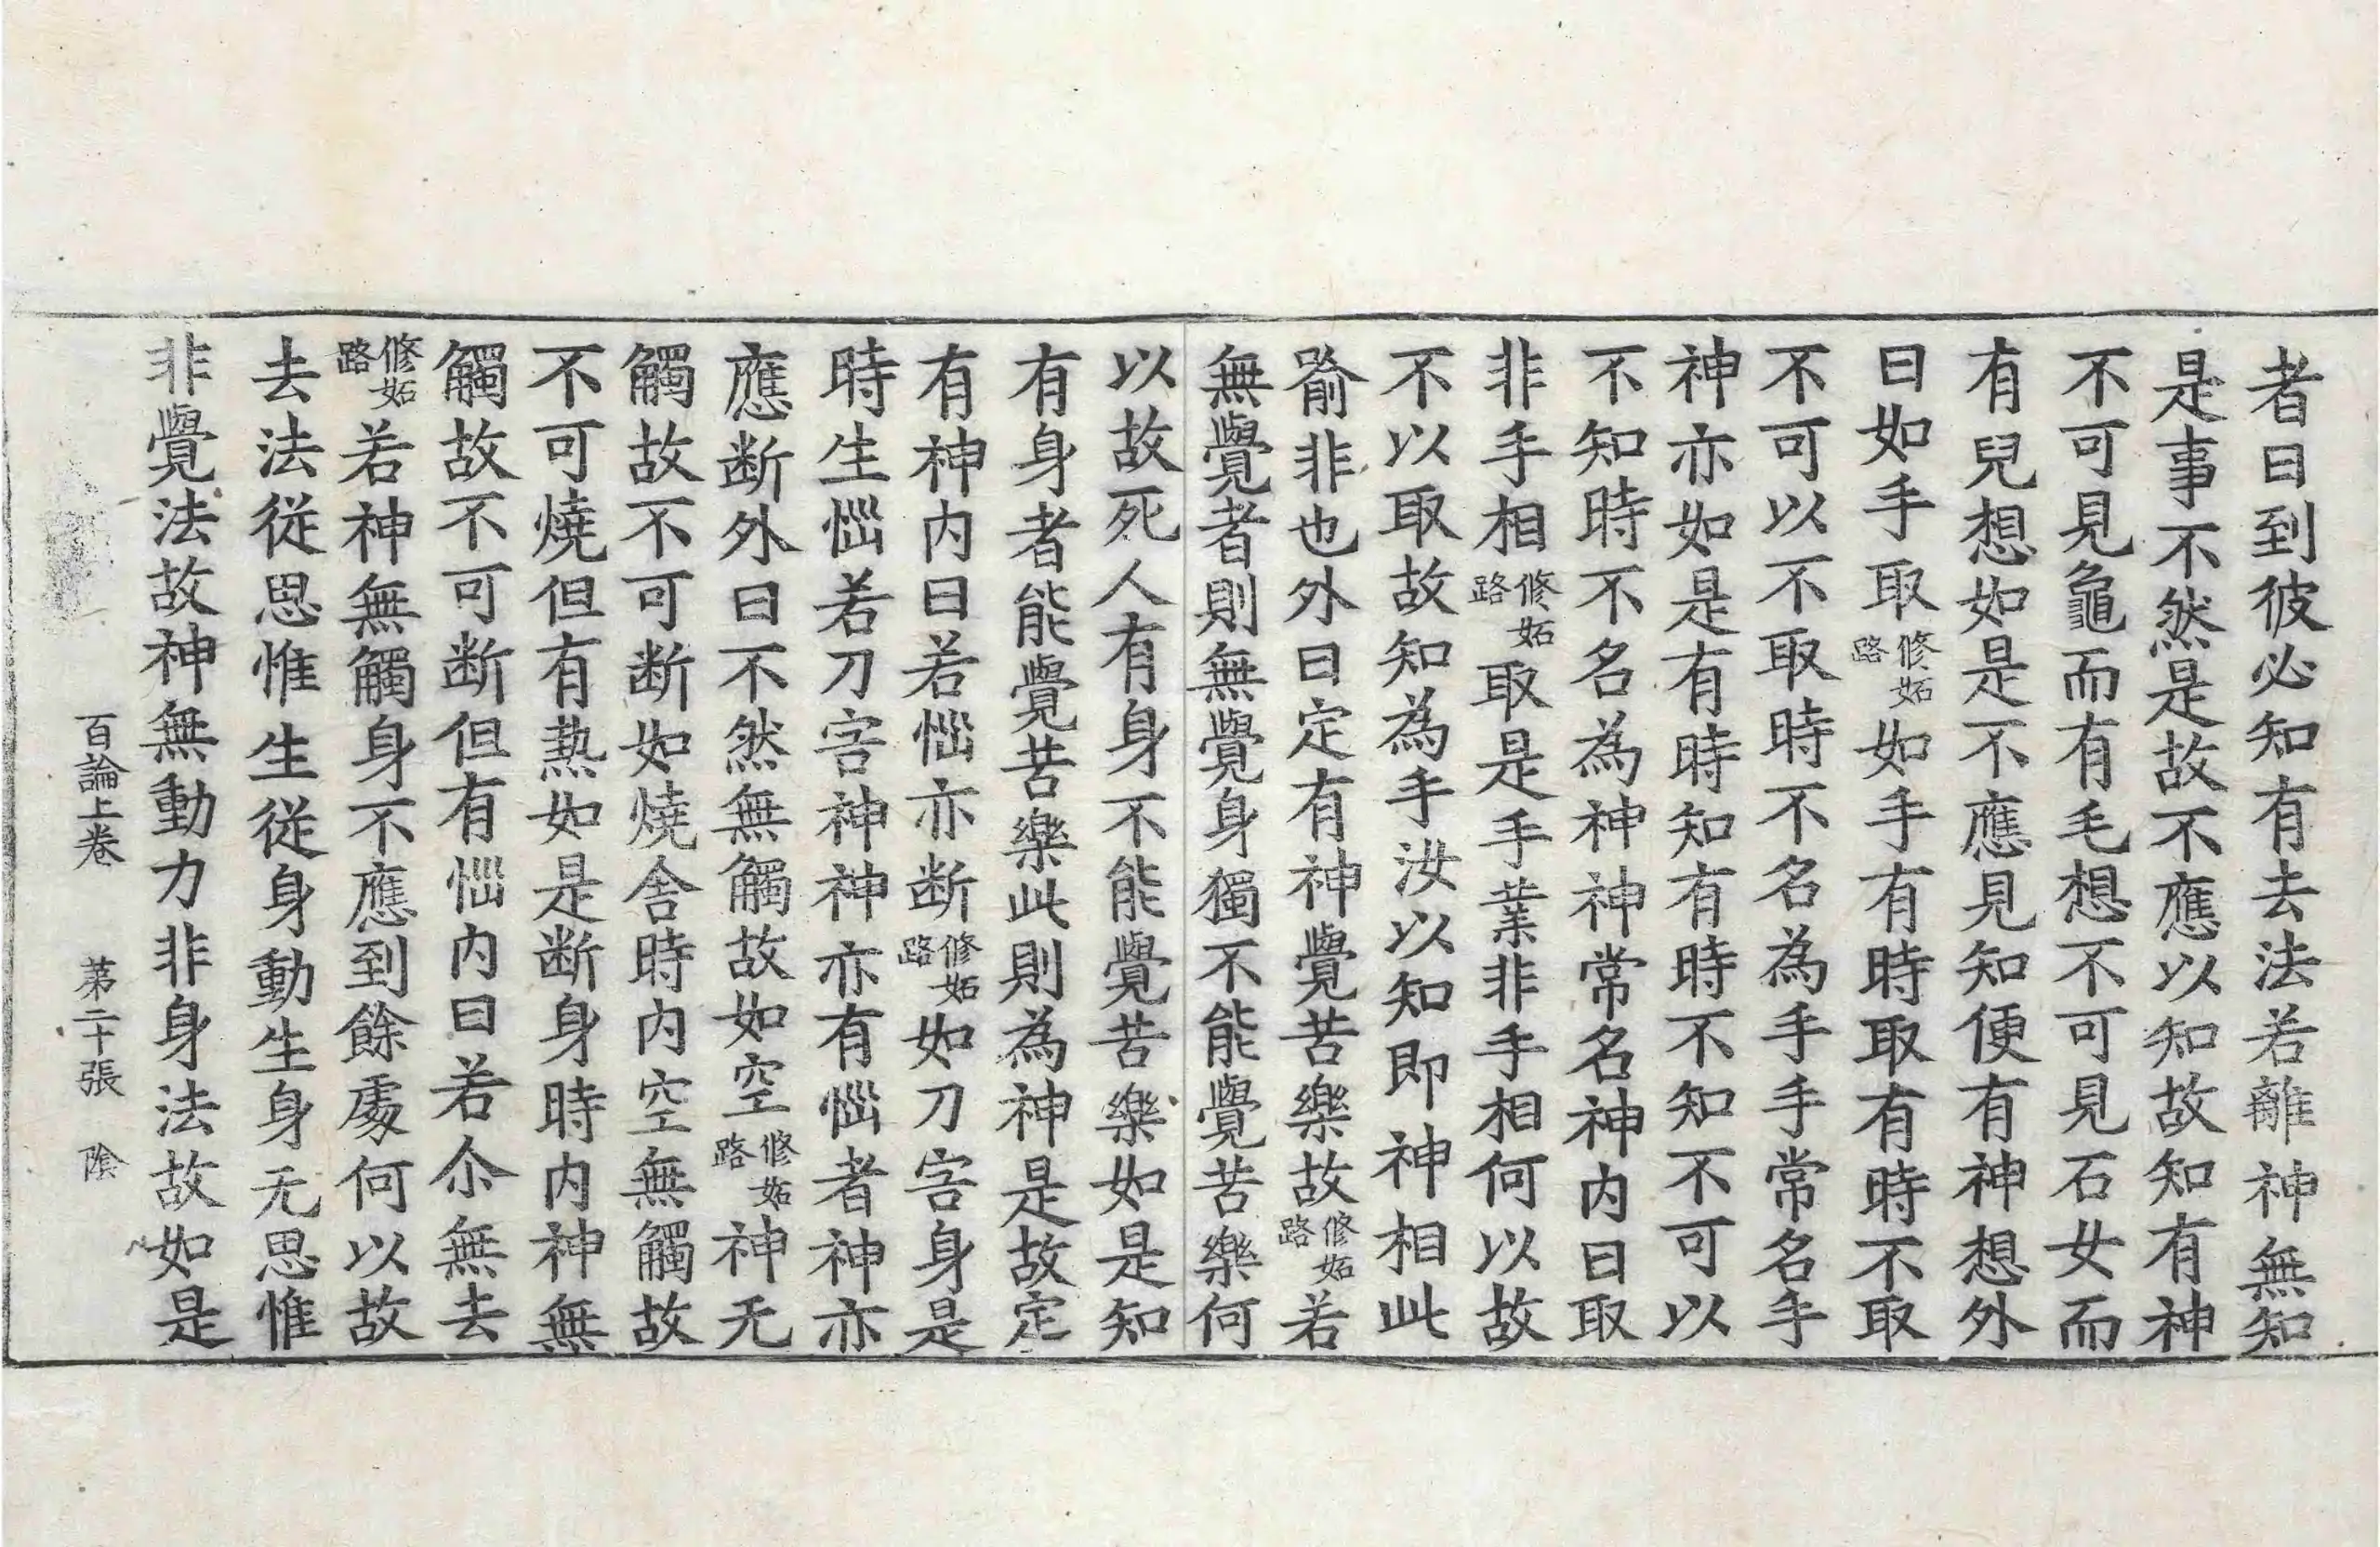 者曰到彼必知有去法若離神無知
是事不然是故不應以知故知有神
不可見龜而有毛想不可見石女而
有兒想如是不應見知便有神想外
曰如手取修妬路如手有時取有時不取
不可以不取時不名為手手常名手
神亦如是有時知有時不知不可以
不知時不名為神神常名神内曰取
非手相修妬路取是手業非手相何以故
不以取故知為手汝以知即神相此
喻非也外曰定有神覺苦樂故修妬路若
無覺者則無覺身獨不能覺苦樂何
以故死人有身不能覺苦樂如是知
有身者能覺苦樂此則為神是故定
有神内曰若惱亦断修妬路如刀害身是
時生惱若刀害神神亦有惱者神亦
應断外曰不然無觸故如空修妬路神无
觸故不可断如燒舍時内空無觸故
不可燒但有熱如是断身時内神無
觸故不可断但有惱内曰若尒無去
修妬路若神無觸身不應到餘處何以故
去法從思惟生從身動生身无思惟
非覺法故神無動力非身法故如是
百論上卷 第二十張 陰